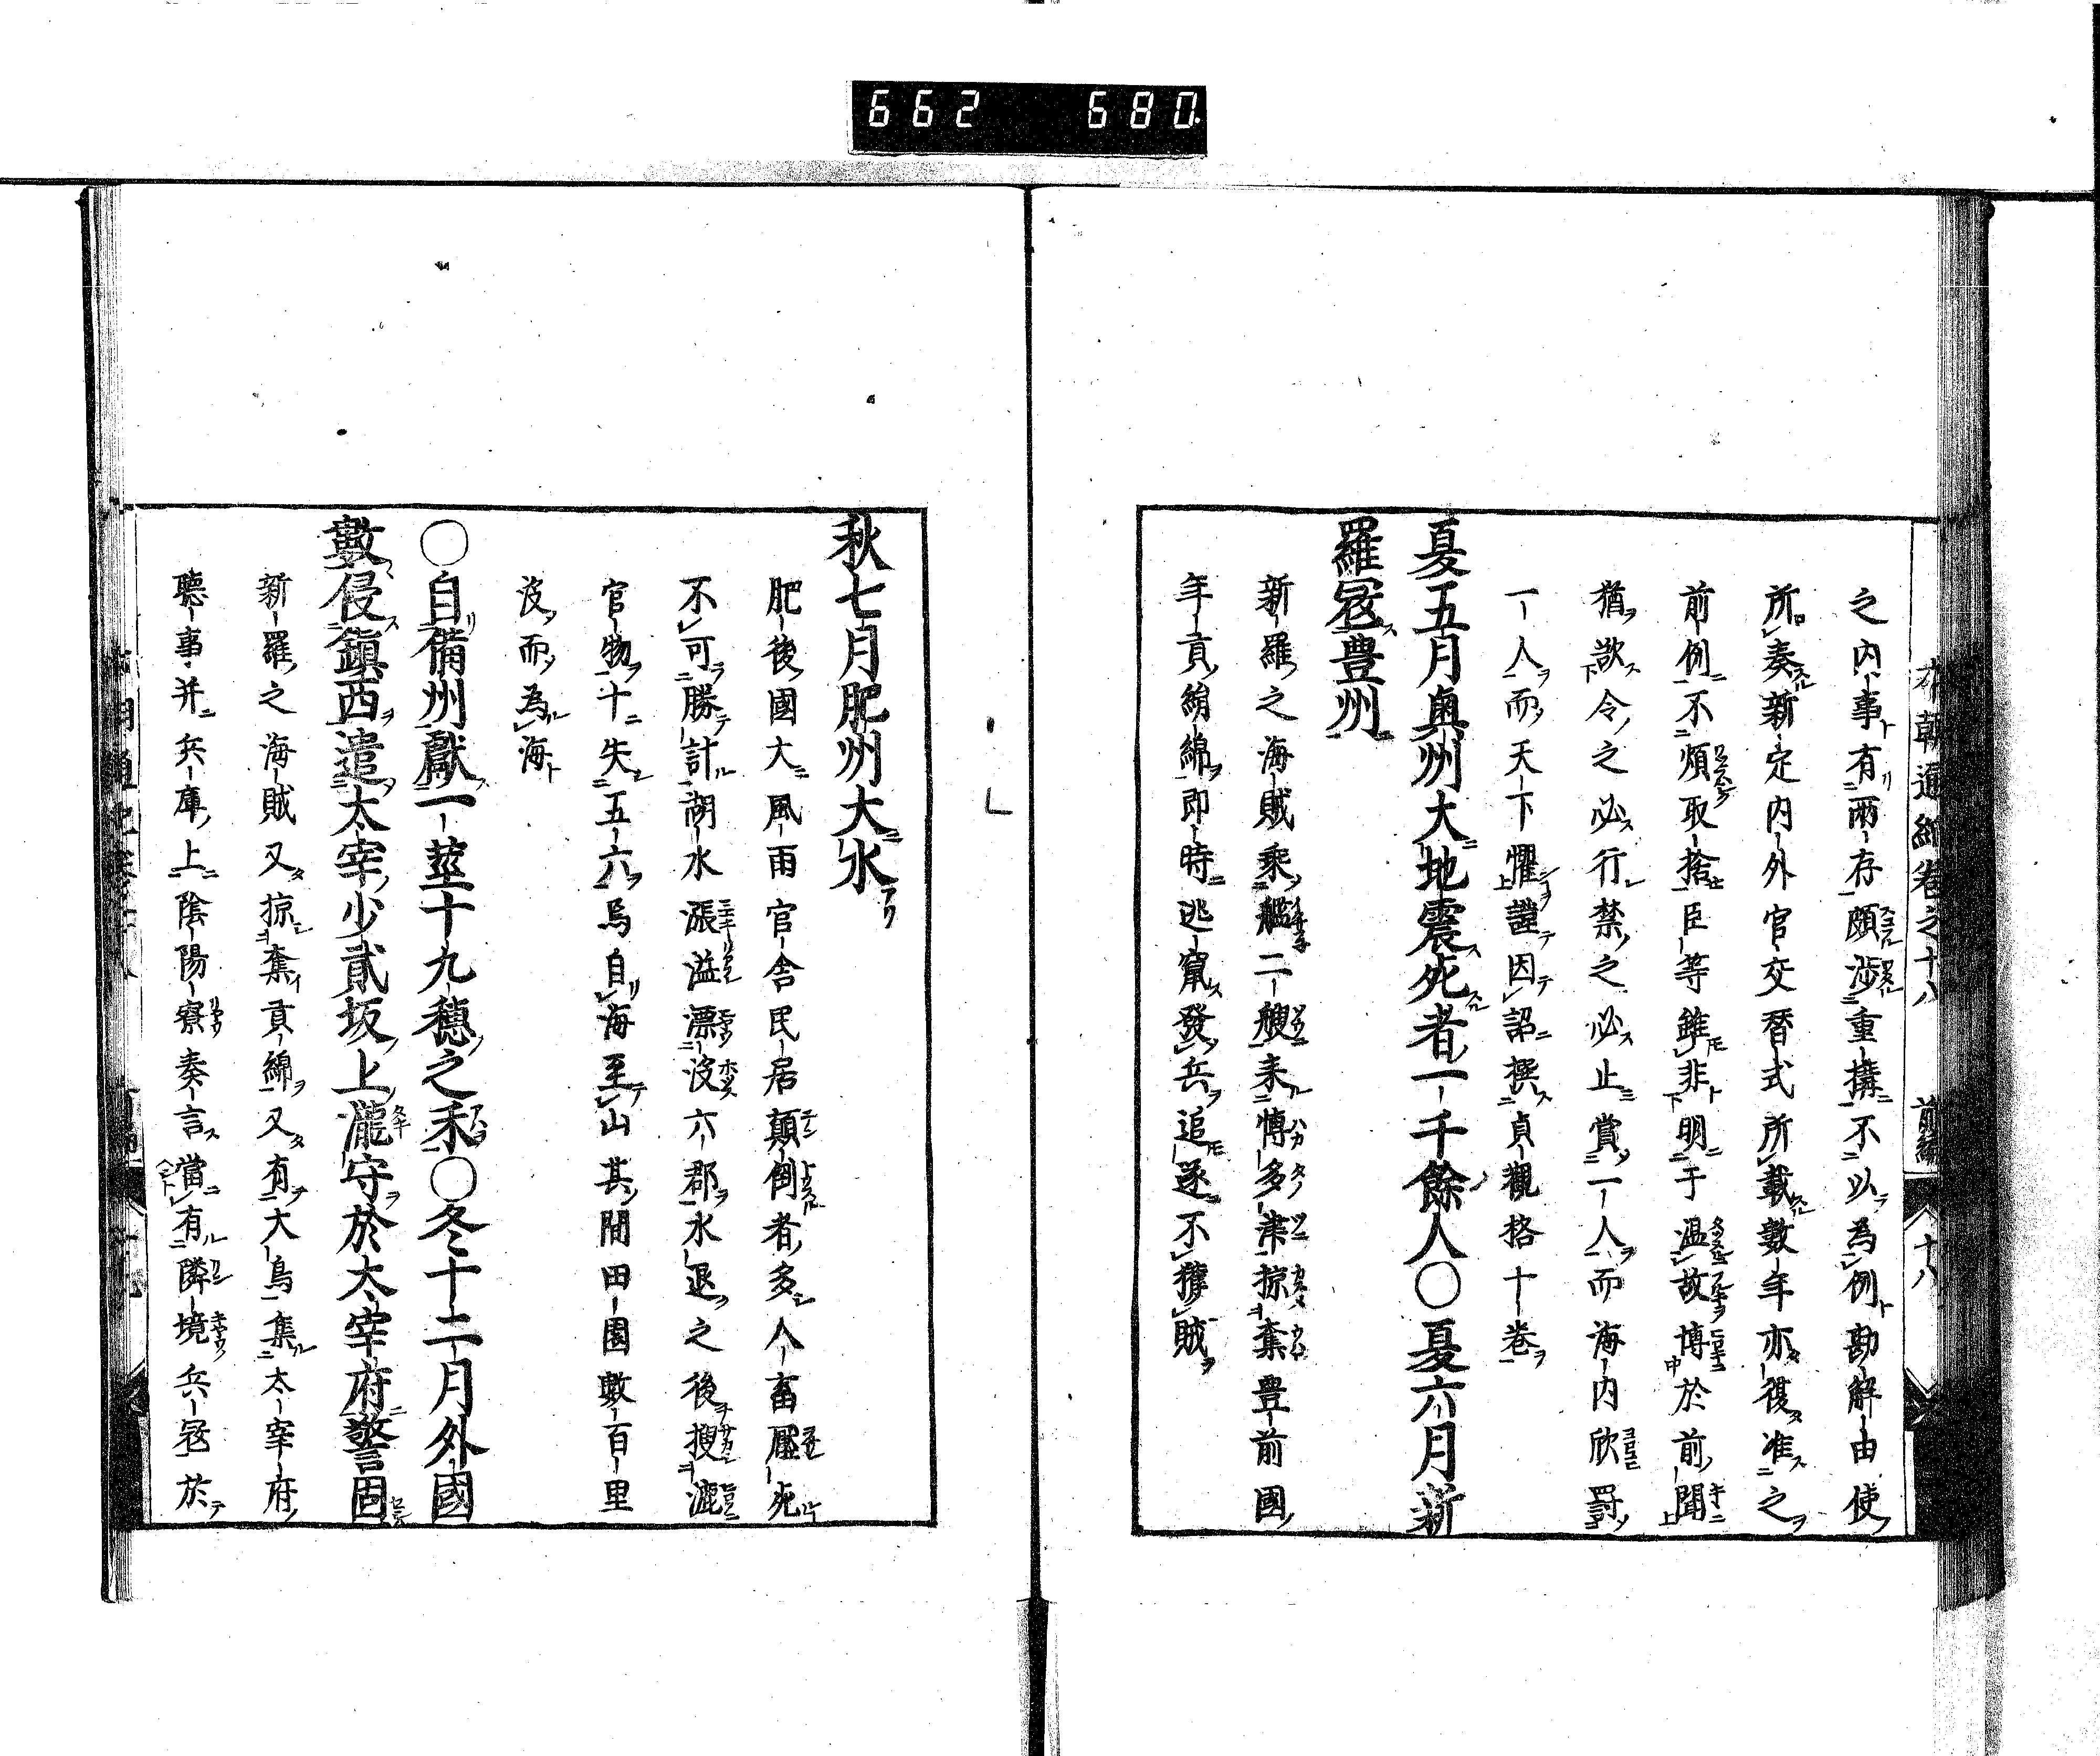 662 680
本朝通紀卷之十八 前編 十八
之内事有兩存頗渉重搆不以為例勘解由使
所奏新定内外官交替式所載數年亦復准之
前例不煩取捨臣等雖非明于温故博於前聞
猶欲令之必行禁之必止賞一人而海内欣罸
一人而天下懼謹因詔撰貞觀格十卷
夏五月奥州大地震死者一千餘人○夏六月新
羅冦豊州
新羅之海賊乘艦二艘来博多津掠奪豊前國
年貢絹綿即時逃竄發兵追逐不獲賊
秋七月肥州大水
肥後國大風雨官舎民居顛倒者多人畜壓死
不可勝計湖水漲溢漂没六郡水退之後搜漉
官物十失五六焉自海至山其間田園數百里
没而為海
○自備州獻一莖十九穗之禾○冬十二月外國
數侵鎮西遣太宰少貳坂上瀧守於太宰府警固
新羅之海賊又掠奪貢綿又有大鳥集太宰府
聽事并兵庫上陰陽寮奏言當有隣境兵冦於